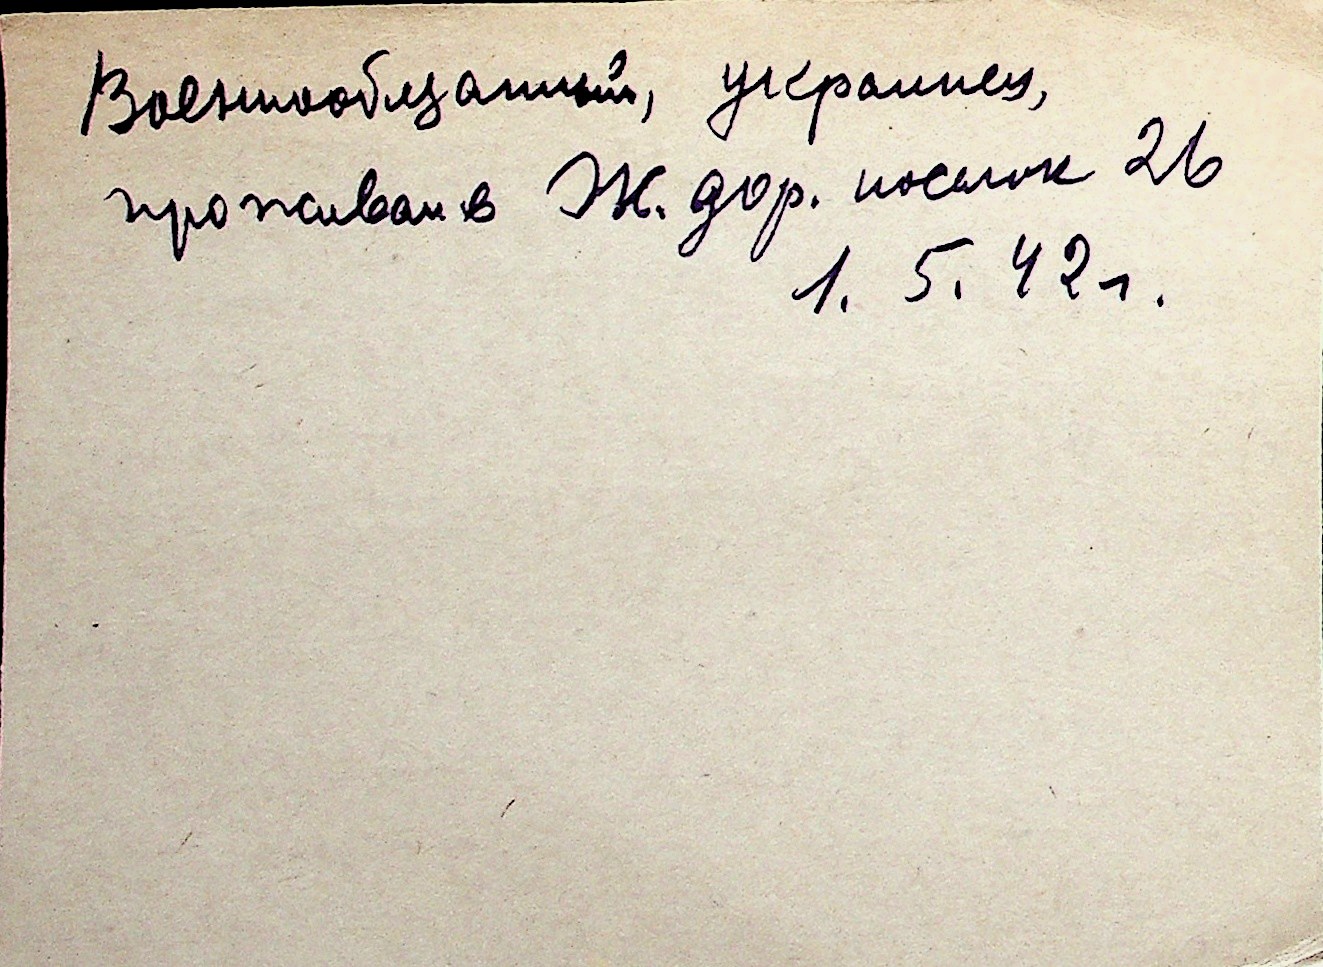 Военнообязанный, украинец,
проживал в Ж. дор. поселок 26
1. 5. 42 г.